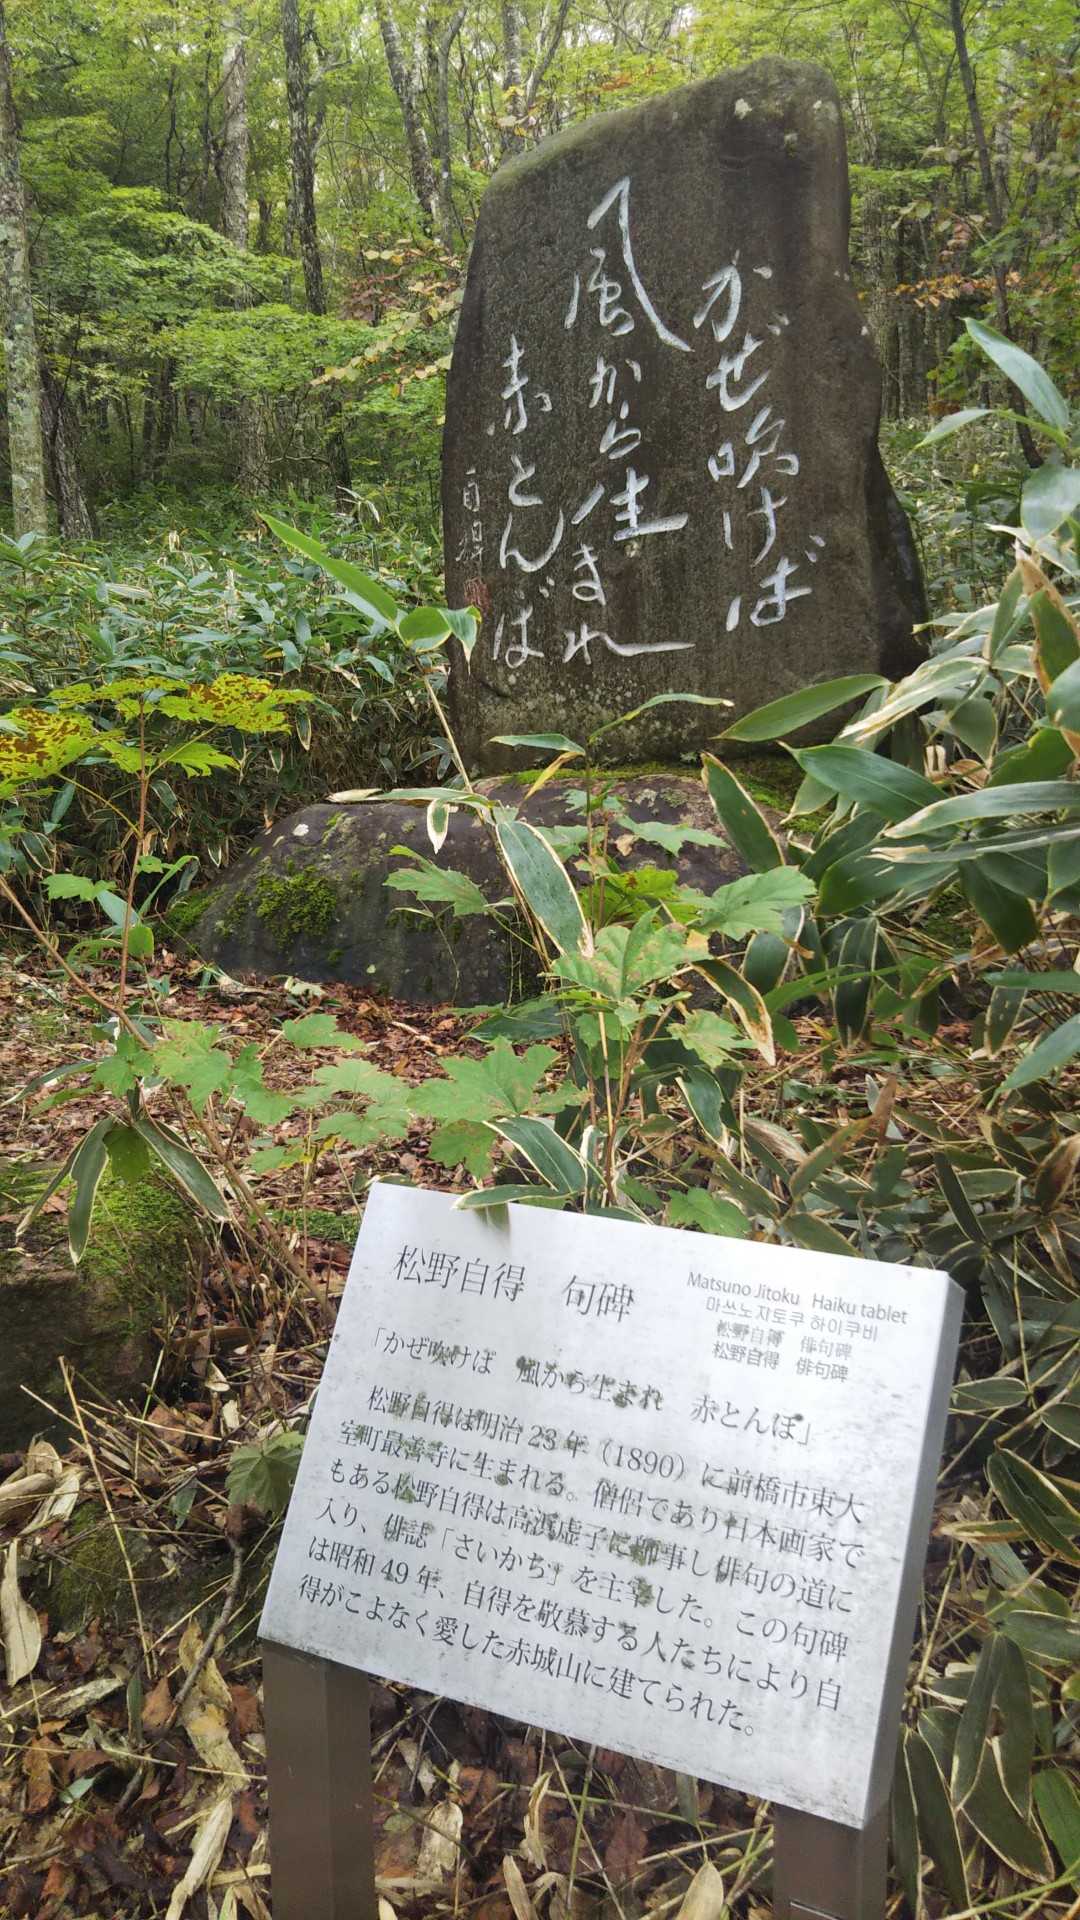 かぜ吹けば
風から生まれ
赤とんば
自得
松野自得　句碑
Matsuno Jitoku Haiku tablet
마쓰노 지토쿠 하이쿠비
松野自得　俳句碑
松野自得　俳句碑
「かぜ吹けば　風から生まれ　赤とんぼ」
松野自得は明治 23 年（1890）に前橋市東大
室町最善寺に生まれる。僧侶であり日本画家で
もある松野自得は高浜虚子に師事し俳句の道に
入り、俳誌「さいかち」を主宰した。この句碑
は昭和 49 年、自得を敬慕する人たちにより自
得がこよなく愛した赤城山に建てられた。